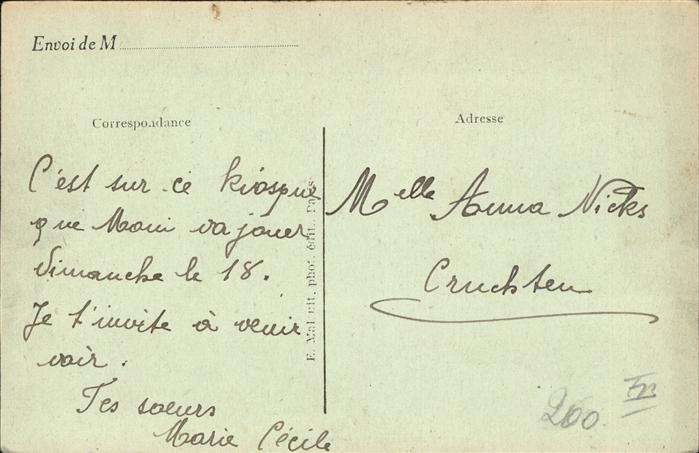 Envoi de M
Correspondance
Adresse
C'est sur ce kiosque
que Moni va jouer
dimanche le 18.
Je t'invite à venir
voir.
Tes soeurs
Marie Cécile
Melle Anna Nicks
Cruchten
260.